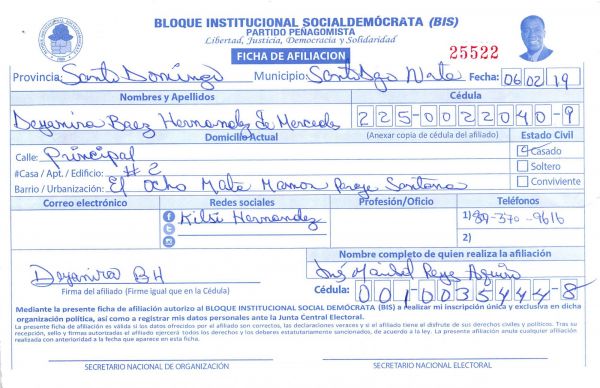 BLOQUE INSTITUCIONAL SOCIALDEMÓCRATA (BIS)
PARTIDO PEÑAGOMISTA
Libertad, Justicia, Democracia y Solidaridad
FICHA DE AFILIACION
25522
Provincia: Santo Domingo Municipio: Santo Dgo Norte Fecha: 06/02/19
Nombres y Apellidos Cédula
Deyanira Baez Hernandez de Mercedes 225-0022040-9
Domicilio Actual (Anexar copia de cédula del afiliado) Estado Civil
Calle: Principal Casado
#Casa / Apt. / Edificio: #2 Soltero
Barrio / Urbanización: El Ocho Mata Mamon Santana Conviviente
Correo electrónico Redes sociales Profesión/Oficio Teléfonos
Hernandez 1) 829-370-9616
2)
Nombre completo de quien realiza la afiliación
Deyanira BH José Reye Aquino
Firma del afiliado (Firme igual que en la Cédula) Cédula: 0010035444-8
Mediante la presente ficha de afiliación autorizo al BLOQUE INSTITUCIONAL SOCIAL DEMÓCRATA (BIS) a realizar mi inscripción única y exclusiva en dicha
organización política, así como a registrar mis datos personales ante la Junta Central Electoral.
La presente ficha de afiliación es válida si los datos ofrecidos por el afiliado son correctos, las declaraciones veraces y si el afiliado tiene el disfrute de sus derechos civiles y políticos. Tras su
recepción, sello y firmas autorizadas el afiliado ejercerá todos los derechos y los deberes estatutariamente sancionados, de acuerdo a la ley. La presente afiliación anula cualquier afiliación
realizada con anterioridad a la fecha que aparece en esta ficha.
SECRETARIO NACIONAL DE ORGANIZACIÓN SECRETARIO NACIONAL ELECTORAL